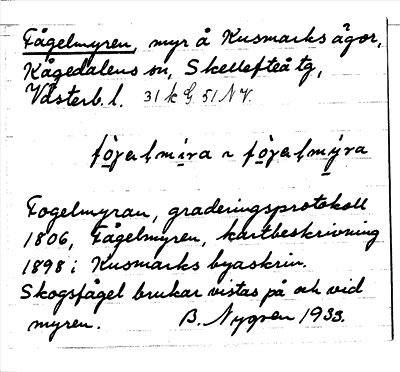 Fågelmyren, myr å Kusmarks ägor,
Kågedalens sn, Skellefteå tg,
Västerb. l. 31 k G 51 NV.
Fogelmyran, graderingsprotokoll
1806, Fågelmyren, kartbeskrivning
1898 i Kusmarks byaskrin.
Skogsfågel brukar vistas på och vid
myren. B. Nygren 1933.